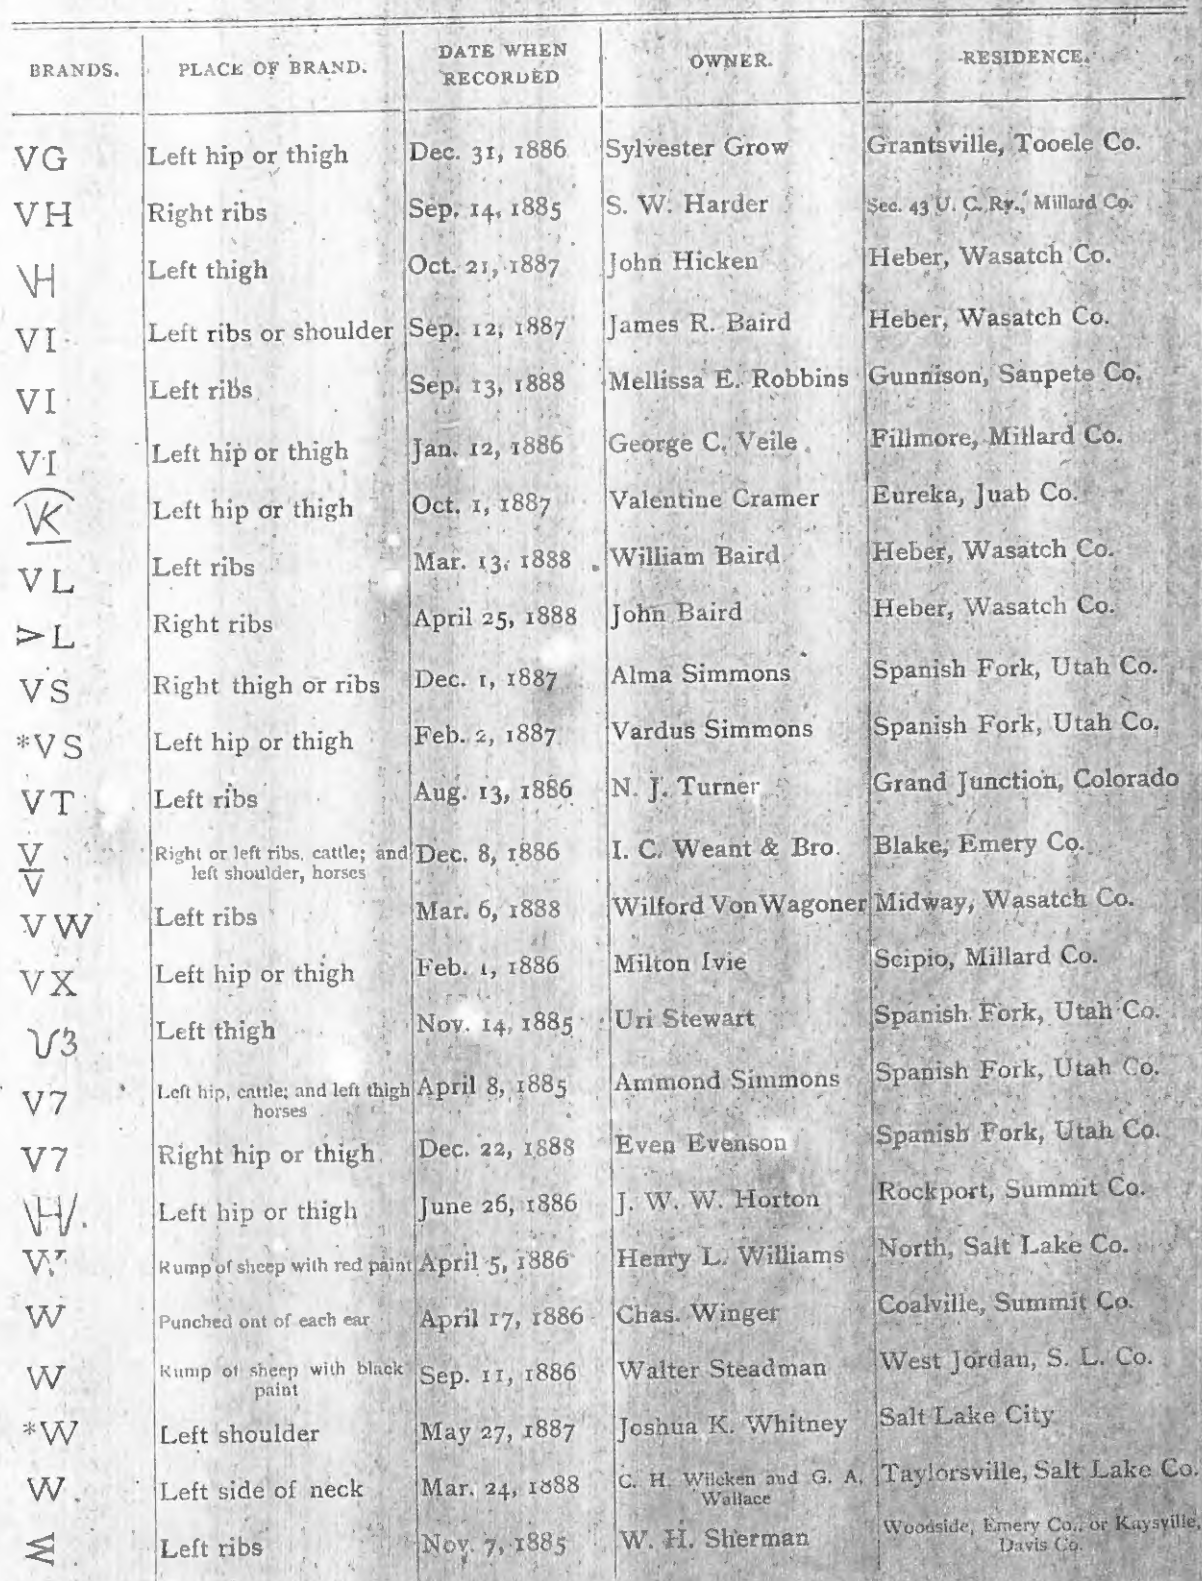 BRANDS. PLACE OF BRAND. DATE WHEN RECORDED OWNER. RESIDENCE.
VG Left hip or thigh Dec. 31, 1886 Sylvester Grow Grantsville, Tooele Co.
VH Right ribs Sep. 14, 1885 S. W. Harder Sec. 43 U. C. Ry., Millard Co.
\H Left thigh Oct. 21, 1887 John Hicken Heber, Wasatch Co.
VI Left ribs or shoulder Sep. 12, 1887 James R. Baird Heber, Wasatch Co.
VI Left ribs Sep. 13, 1888 Mellissa E. Robbins Gunnison, Sanpete Co.
VI Left hip or thigh Jan. 12, 1886 George C. Veile Fillmore, Millard Co.
VK Left hip or thigh Oct. 1, 1887 Valentine Cramer Eureka, Juab Co.
VL Left ribs Mar. 13, 1888 William Baird Heber, Wasatch Co.
>L Right ribs April 25, 1888 John Baird Heber, Wasatch Co.
VS Right thigh or ribs Dec. 1, 1887 Alma Simmons Spanish Fork, Utah Co.
*VS Left hip or thigh Feb. 2, 1887 Vardus Simmons Spanish Fork, Utah Co.
VT Left ribs Aug. 13, 1886 N. J. Turner Grand Junction, Colorado
V Right or left ribs, cattle; and Dec. 8, 1886 I. C. Weant & Bro. Blake, Emery Co.
V left shoulder, horses
VW Left ribs Mar. 6, 1888 Wilford Von Wagoner Midway, Wasatch Co.
VX Left hip or thigh Feb. 1, 1886 Milton Ivie Scipio, Millard Co.
V3 Left thigh Nov. 14, 1885 Uri Stewart Spanish Fork, Utah Co.
V7 Left hip, cattle; and left thigh April 8, 1885 Ammond Simmons Spanish Fork, Utah Co.
horses
V7 Right hip or thigh Dec. 22, 1888 Even Evenson Spanish Fork, Utah Co.
\H/ Left hip or thigh June 26, 1886 J. W. W. Horton Rockport, Summit Co.
W Rump of sheep with red paint April 5, 1886 Henry L. Williams North, Salt Lake Co.
W Punched out of each ear April 17, 1886 Chas. Winger Coalville, Summit Co.
W Rump of sheep with black Sep. 11, 1886 Walter Steadman West Jordan, S. L. Co.
paint
*W Left shoulder May 27, 1887 Joshua K. Whitney Salt Lake City
W Left side of neck Mar. 24, 1888 C. H. Wilcken and G. A. Taylorsville, Salt Lake Co.
Wallace
W Left ribs Nov. 7, 1885 W. H. Sherman Woodside, Emery Co., or Kaysville,
Davis Co.